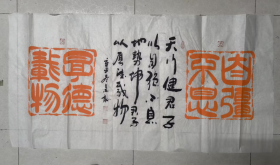 自彊
不息
天行健君子
以自强不息
地势坤君子
以厚德载物
厚德
載物